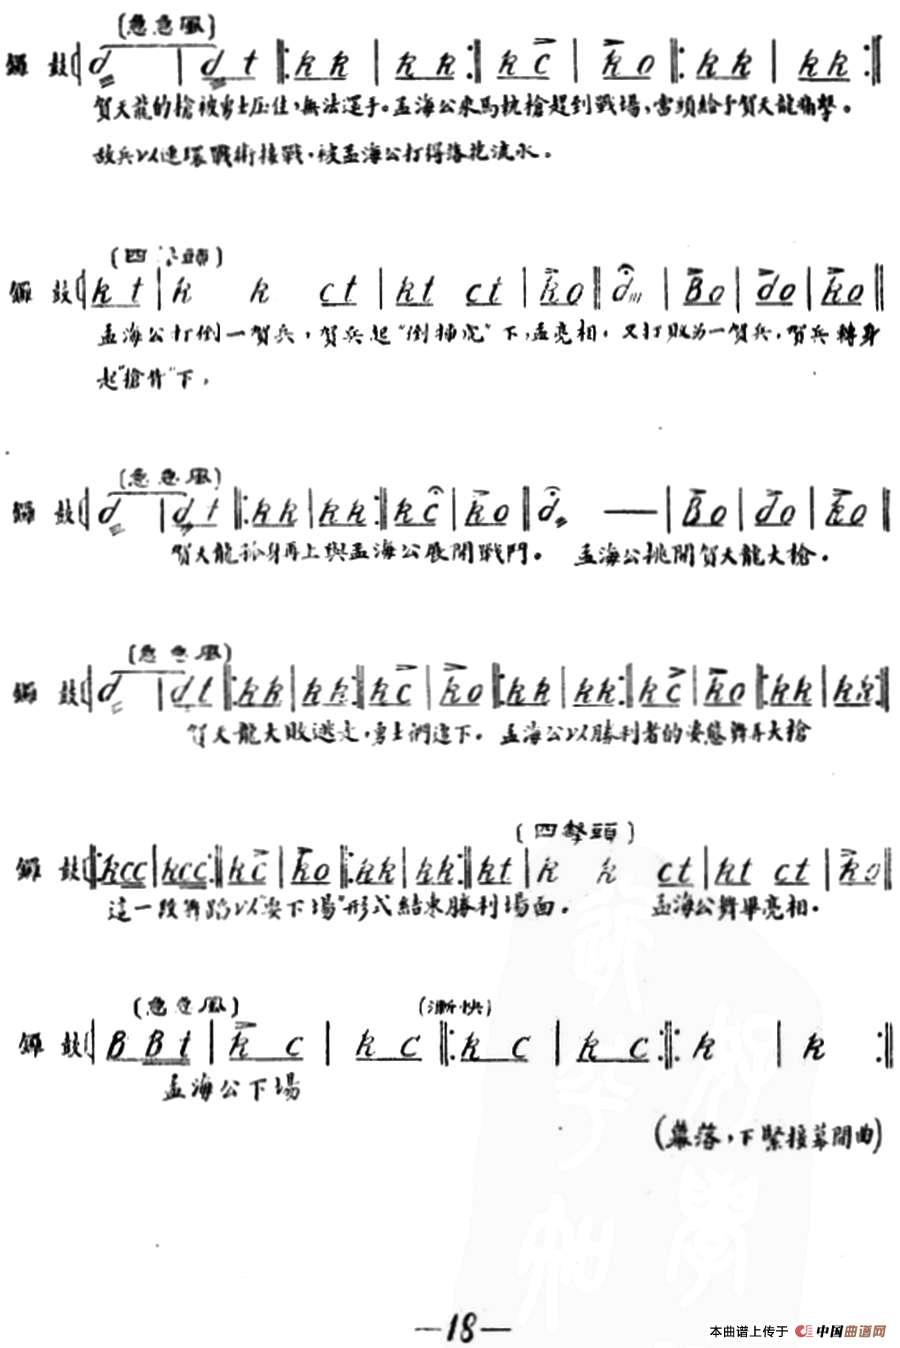 (急急風)
鑼鼓 d | d t ‖: k k | k k :‖ k c | k o ‖: k k | k k :‖
賀天龍的槍被勇士压住，無法還手。孟海公來馬抗槍趕到戰場，當頭給予賀天龍痛擊。
敌兵以連環戰術接戰，被孟海公打得落花流水。
(四 頭)
鑼鼓 k t | k k c t | k t c t | k o ‖ d | B o | d o | k o ‖
孟海公打倒一賀兵，賀兵起"倒 "下，孟亮相，又打敗另一賀兵，賀兵轉身
起"槍背"下，
(急急風)
鑼鼓 d | d t ‖: k k | k k :‖ k c | k o ‖ d — | B o | d o | k o ‖
賀天龍孤身再上與孟海公展開戰鬥。 孟海公挑開賀天龍大槍。
(急急風)
鑼鼓 d | d t ‖: k k | k k :‖ k c | k o ‖: k k | k k :‖ k c | k o ‖: k k | k k :‖
賀天龍大敗逃走，勇士們追下。孟海公以勝利者的姿態舞弄大槍
(四擊頭)
鑼鼓 ‖: k c c | k c c :‖ k c | k o ‖: k k | k k :‖ k t | k k c t | k t c t | k o ‖
這一段舞蹈以"耍下場"形式結束勝利場面。 孟海公舞畢亮相。
(急急風) (漸快)
鑼鼓 B B t | k c | k c ‖: k c | k c :‖: k | k :‖
孟海公下場
(幕落，下緊接幕間曲)
—18—
本曲谱上传于 中国曲谱网